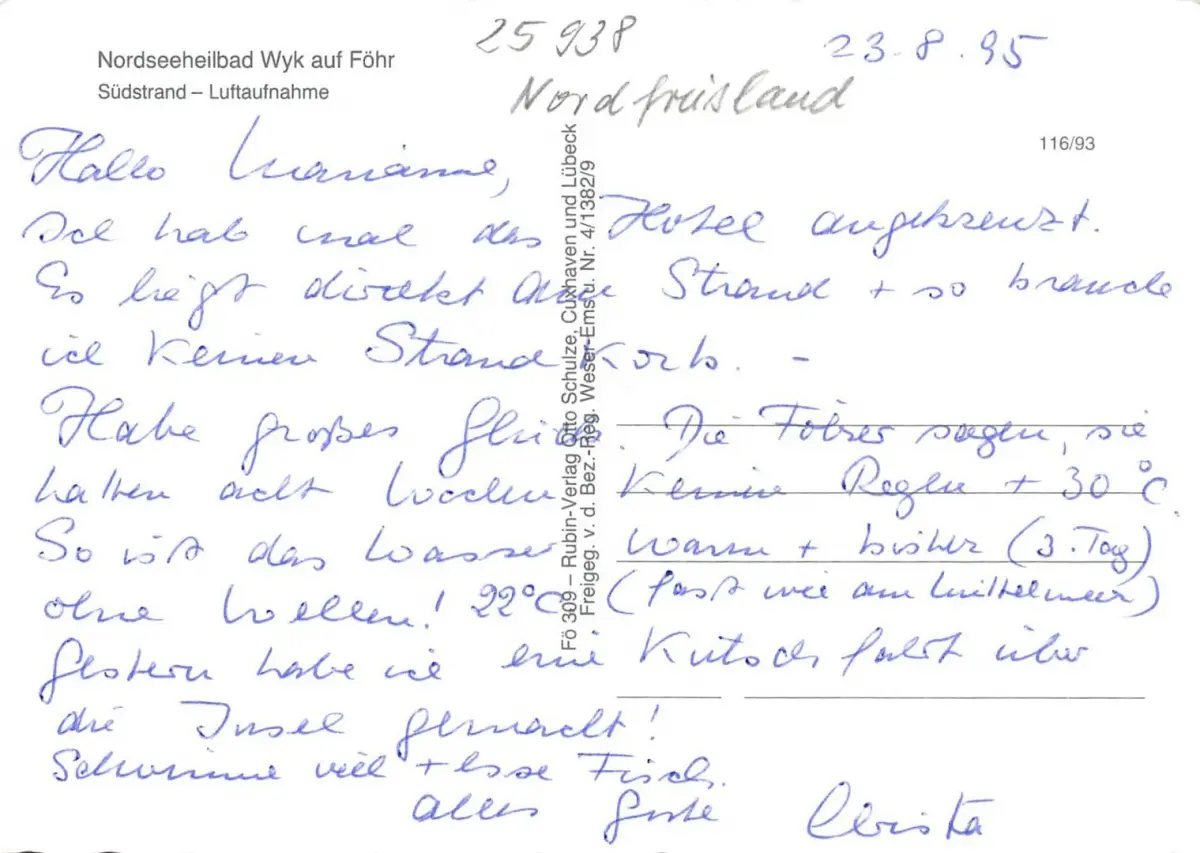 Nordseeheilbad Wyk auf Föhr
Südstrand – Luftaufnahme
25938
Nordfreisland
23.8.95
116/93
Hallo Marianne,
Ich hab mal das Hotel angekreuzt.
Es liegt direkt am Strand + so brauche
ich keinen Strandkorb. –
Habe großes Glück. Die Föhrer sagen, sie
hatten acht Wochen keinen Regen + 30°C.
So ist das Wasser warm + bisher (3. Tag)
ohne Wellen! 22°C (fast wie am Mittelmeer)
Gestern habe ich eine Kutschfahrt über
die Insel gemacht!
Schwimme viel + esse Fisch.
Alles Gute Christa
Fö 309 – Rubin-Verlag Otto Schulze, Cuxhaven und Lübeck
Freigeg. v. d. Bez.-Reg. Weser-Ems u. Nr. 4/1382/9